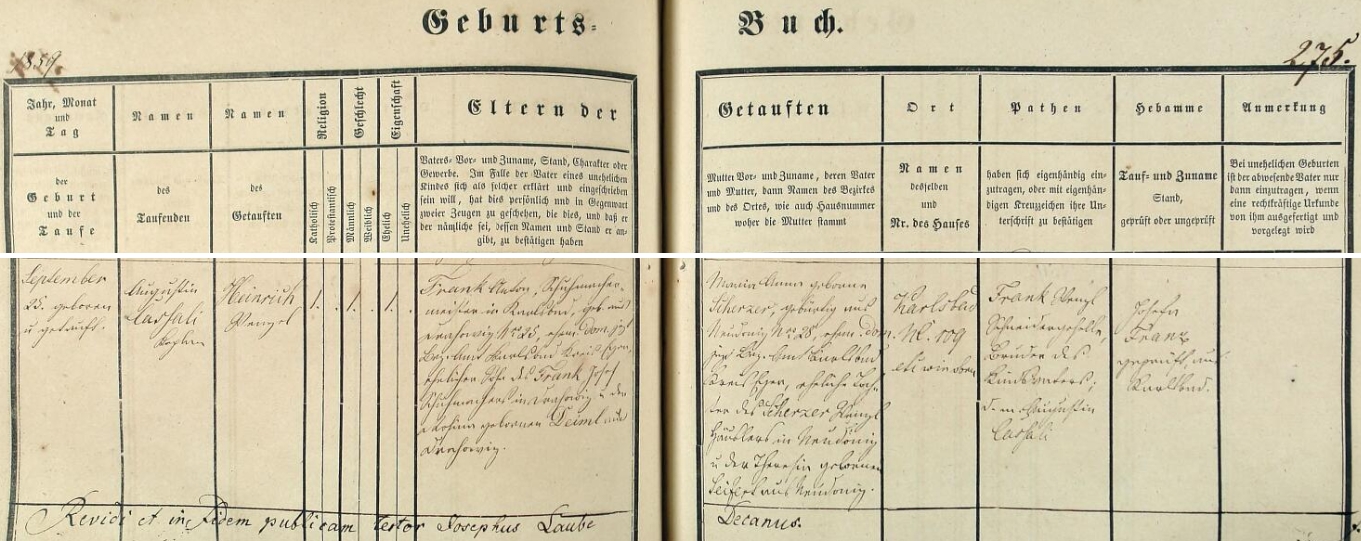 Geburts-
Buch.
1859.
275.
Jahr, Monat
und
Tag
der
Geburt
und der
Taufe
Namen
des
Taufenden
Namen
des
Getauften
Religion
Katholisch
Protestantisch
Geschlecht
Männlich
Weiblich
Eigenschaft
Ehelich
Unehelich
Eltern der
Vaters-Vor- und Zuname, Stand, Charakter oder
Gewerbe. Im Falle der Vater eines unehelichen
Kindes sich als solcher erklärt und eingeschrieben
sein will, hat dies persönlich und in Gegenwart
zweier Zeugen zu geschehen, die dies, und daß er
der nämliche sei, dessen Namen und Stand er an-
gibt, zu bestätigen haben
Getauften
Mutter Vor- und Zuname, deren Vater
und Mutter, dann Namen des Bezirkes
und des Ortes, wie auch Hausnummer
woher die Mutter stammt
Ort
Namen
desselben
und
Nr. des Hauses
Pathen
haben sich eigenhändig ein-
zutragen, oder mit eigenhän-
digen Kreuzzeichen ihre Un-
terschrift zu bestätigen
Hebamme
Tauf- und Zuname
Stand,
geprüft oder ungeprüft
Anmerkung
Bei unehelichen Geburten
ist der abwesende Vater nur
dann einzutragen, wenn
eine rechtkräftige Urkunde
von ihm ausgefertigt und
vorgelegt wird
September
25. geboren
u. getauft.
Augustin
Cassali
Kaplan
Heinrich
Wenzel
1. . 1. . 1. .
Frank Anton, Schuhmacher-
meister in Karlsbad, geb. aus
Drahowitz Nro 28,
Bez. Amt Karlsbad Kreis Eger,
ehelicher Sohn des Frank Josef
Schuhmachers in Drahowitz u. der
Rosina gebornen Deiml aus
Drahowitz.
Maria Anna geborne
Scherzer, gebürtig aus
Neudönig Nro 28,
Bez. Amt Karlsbad
Kreis Eger, eheliche Toch-
ter des Scherzer Wenzl
Häuslers in Neudönig
u. der Theresia gebornen
Seifert aus Neudönig.
Karlsbad
N. 109
Frank Wenzl
Schneidergeselle,
Bruder des
Kindsvaters;
Augustin
Cassali
Josefa
Frank
geprüft aus
Karlsbad.
Revidi et in fidem publicam testor Josephus Laube
Decanus.